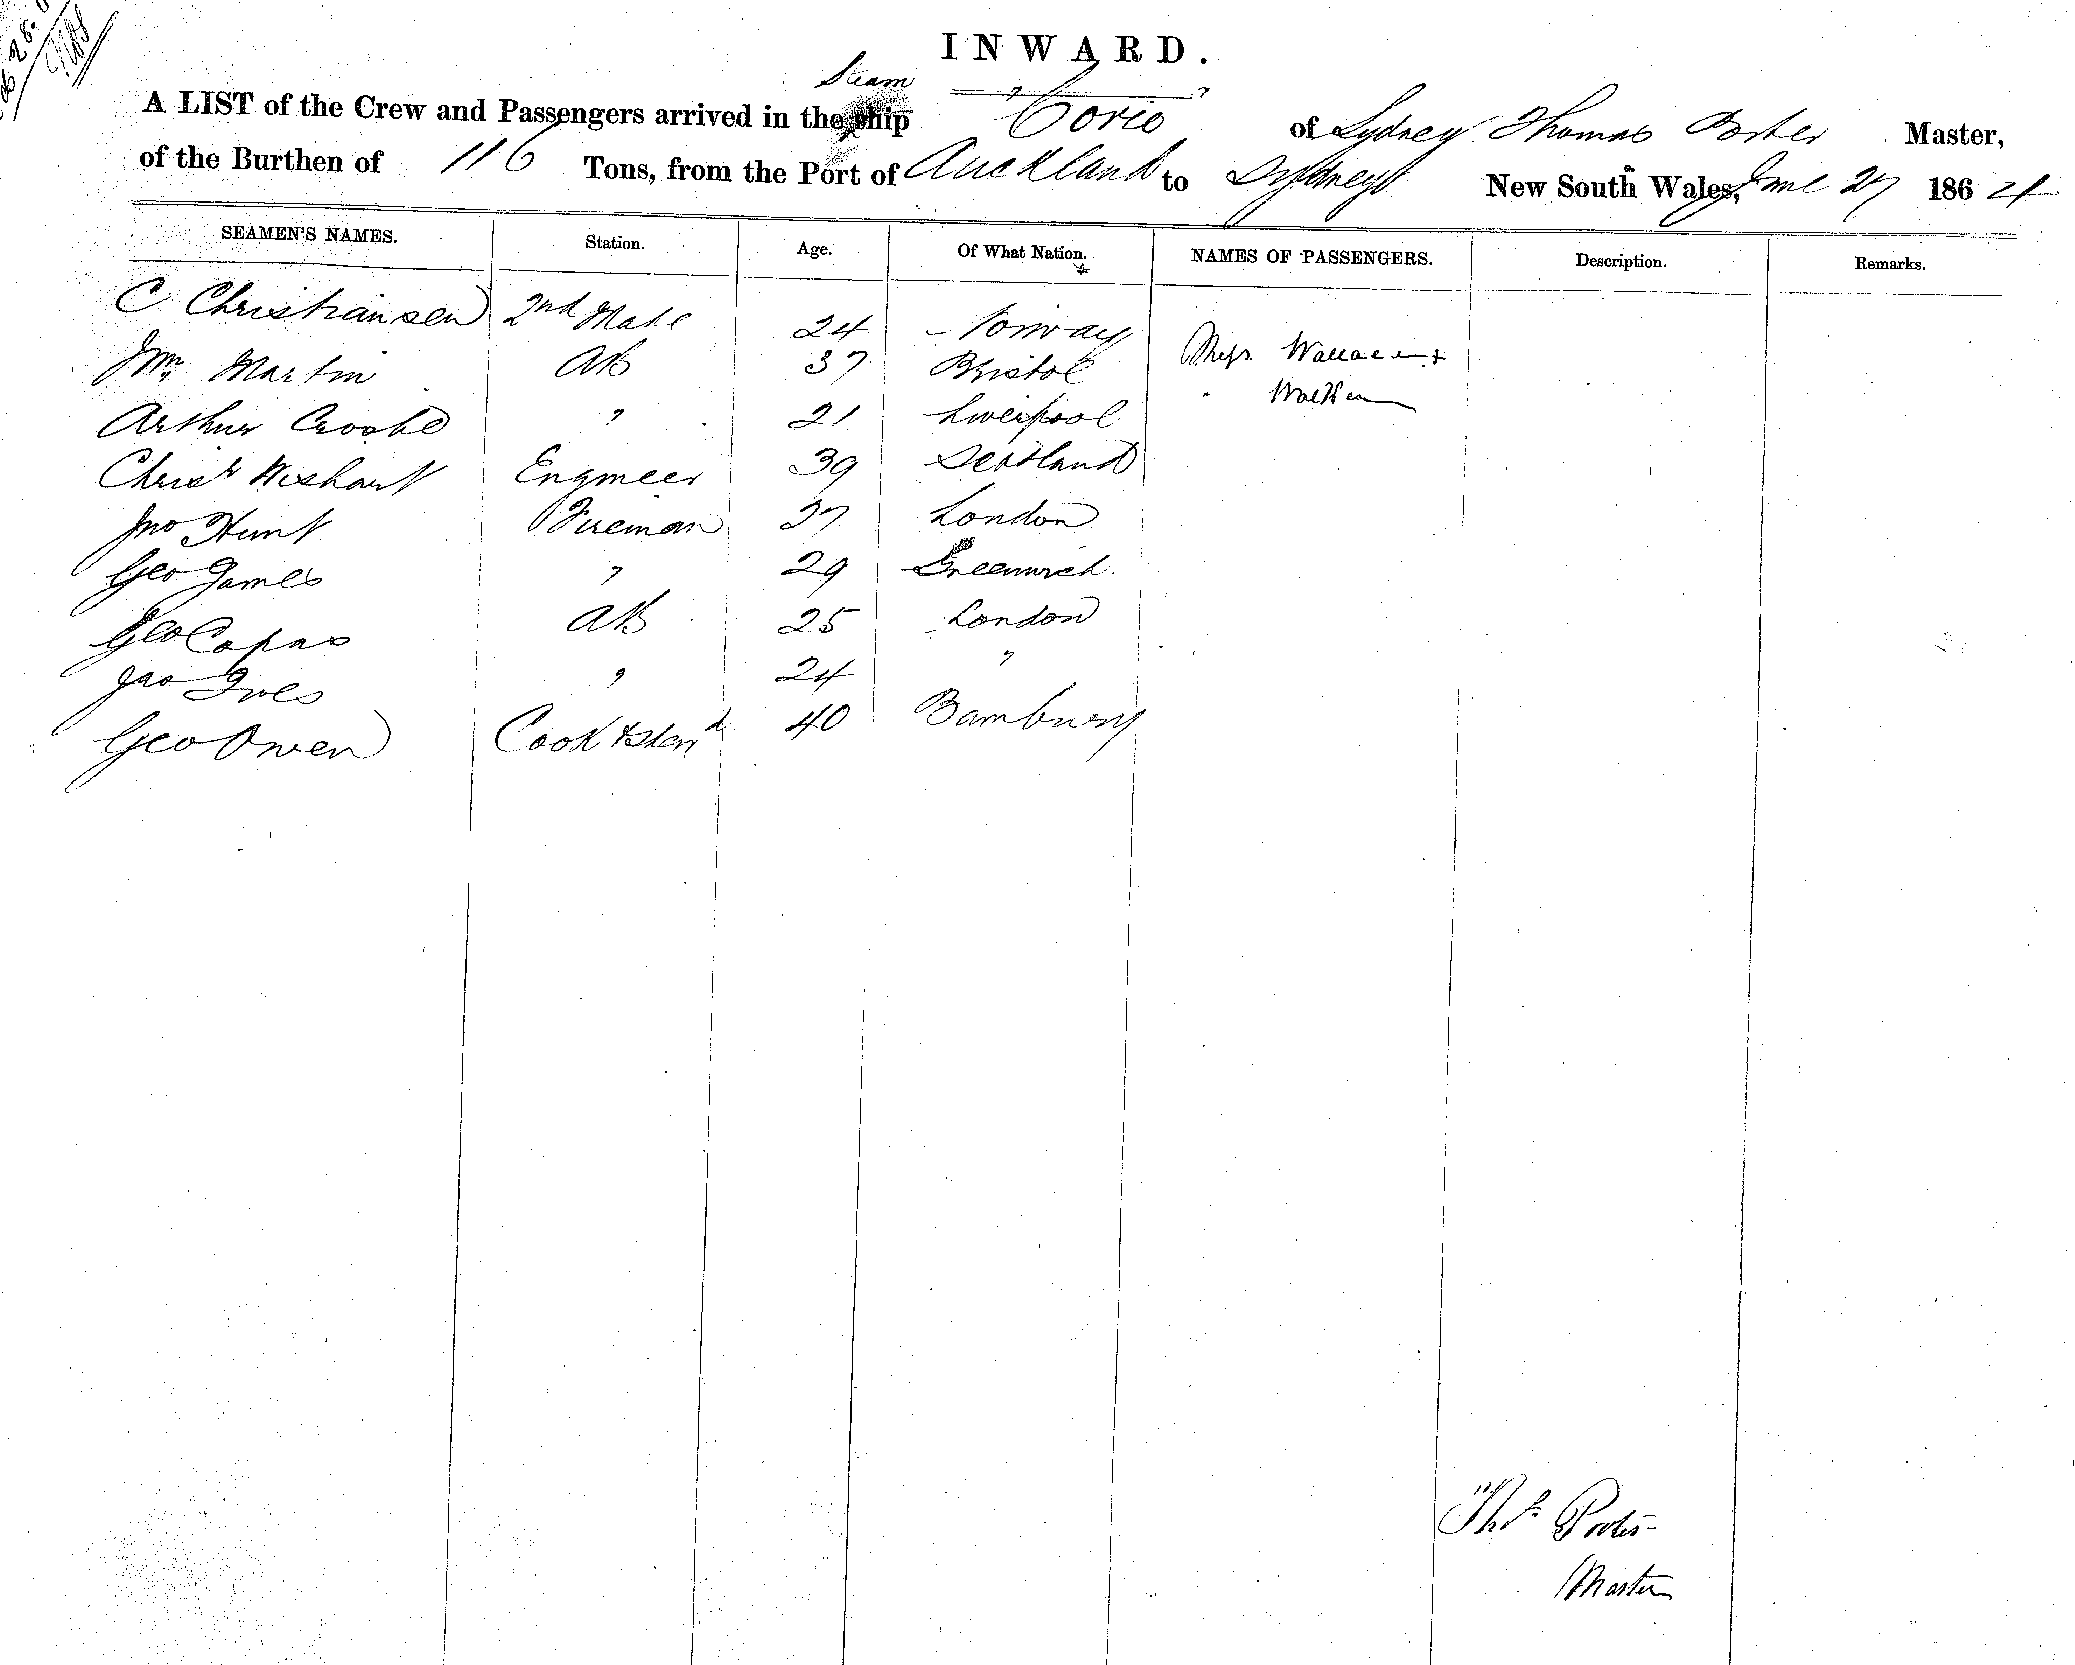 INWARD.
Steam
A LIST of the Crew and Passengers arrived in the ship "Corio" of Sydney Thomas Porter Master,
of the Burthen of 116 Tons, from the Port of Auckland to Sydney New South Wales, June 27 1864
SEAMEN'S NAMES. Station. Age. Of What Nation. NAMES OF PASSENGERS. Description. Remarks.
C Christiansen 2nd Mate 24 Norway
Wm Martin AB 37 Bristol Messrs Wallace &
Arthur Crosbie " 21 Liverpool " Walker
Christr Wishart Engineer 39 Scotland
Jno Hunt Fireman 37 London
Geo James " 29 Greenwich
Geo Copas AB 25 London
Jno Ives " 24 "
Geo Owen Cook & Stewd 40 Bambury
Thos Porter
Master